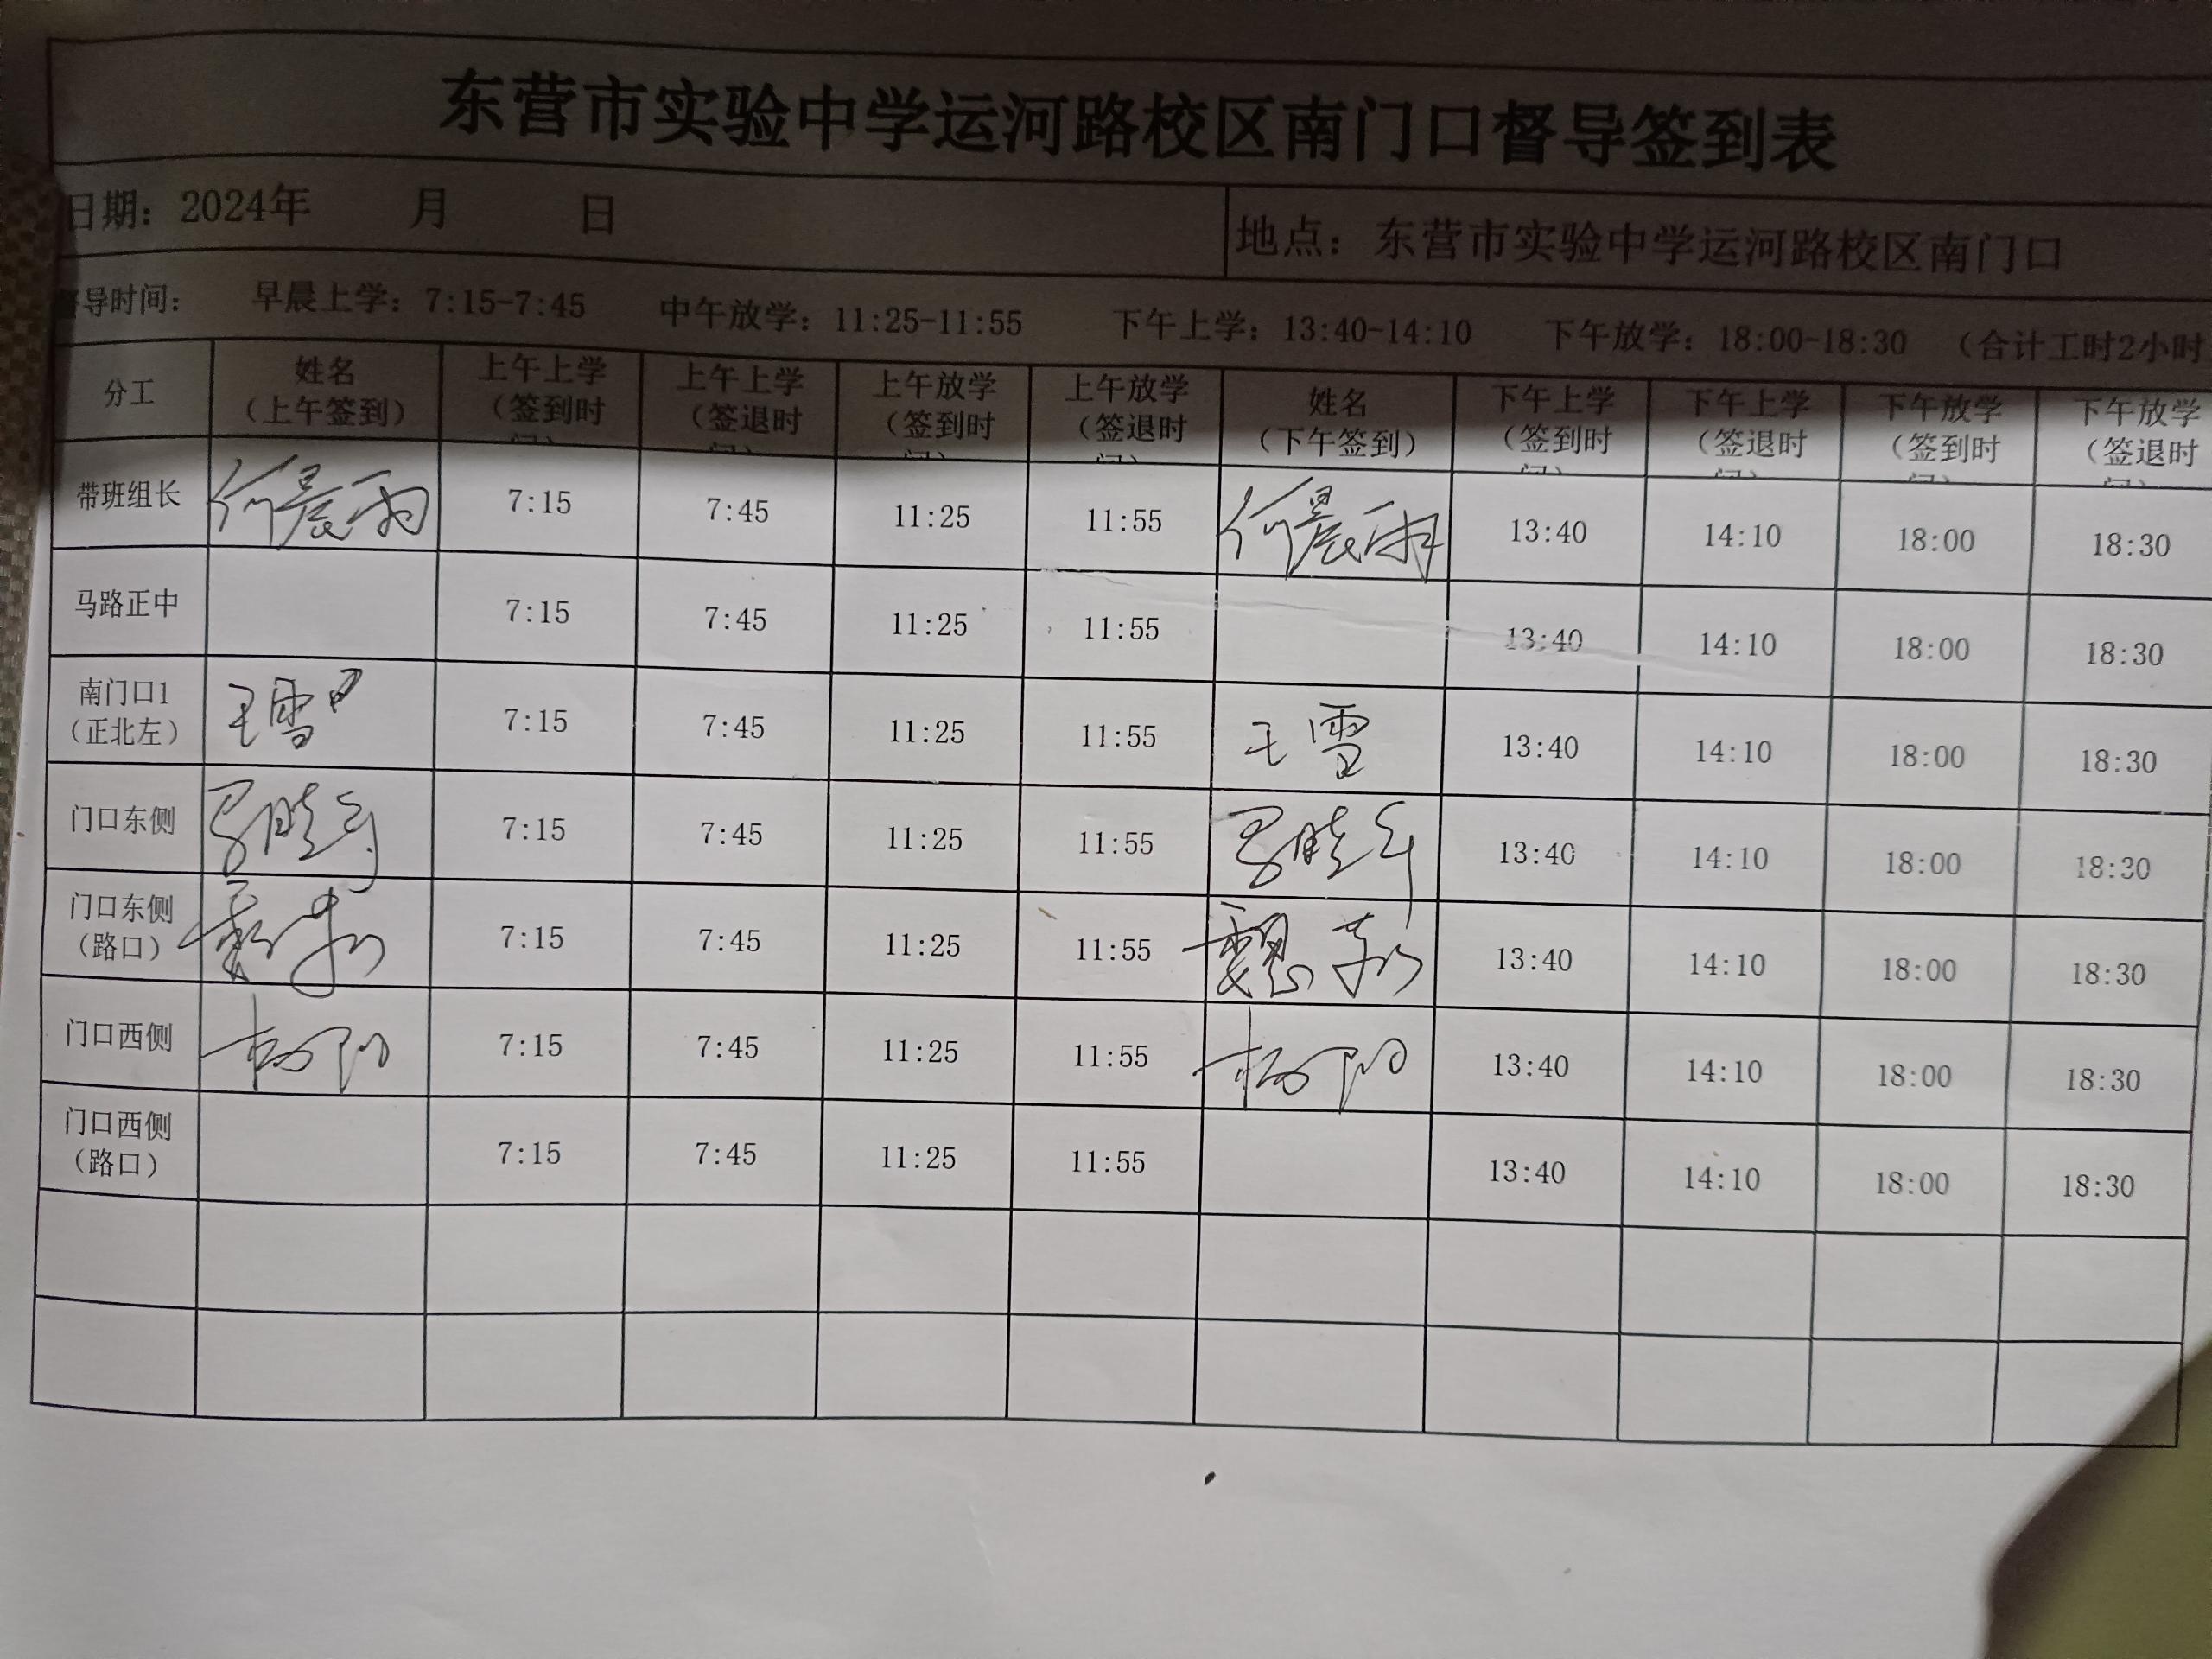 东营市实验中学运河路校区南门口督导签到表
日期：2024年 月 日 地点：东营市实验中学运河路校区南门口
督导时间： 早晨上学：7:15-7:45 中午放学：11:25-11:55 下午上学：13:40-14:10 下午放学：18:00-18:30 （合计工时2小时
分工 姓名（上午签到） 上午上学（签到时间） 上午上学（签退时间） 上午放学（签到时间） 上午放学（签退时间） 姓名（下午签到） 下午上学（签到时间） 下午上学（签退时间） 下午放学（签到时间） 下午放学（签退时间）
带班组长 何晨雨 7:15 7:45 11:25 11:55 何晨雨 13:40 14:10 18:00 18:30
马路正中 7:15 7:45 11:25 11:55 13:40 14:10 18:00 18:30
南门口1（正北左） 王雪 7:15 7:45 11:25 11:55 王雪 13:40 14:10 18:00 18:30
门口东侧 7:15 7:45 11:25 11:55 13:40 14:10 18:00 18:30
门口东侧（路口） 7:15 7:45 11:25 11:55 13:40 14:10 18:00 18:30
门口西侧 杨阳 7:15 7:45 11:25 11:55 杨阳 13:40 14:10 18:00 18:30
门口西侧（路口） 7:15 7:45 11:25 11:55 13:40 14:10 18:00 18:30